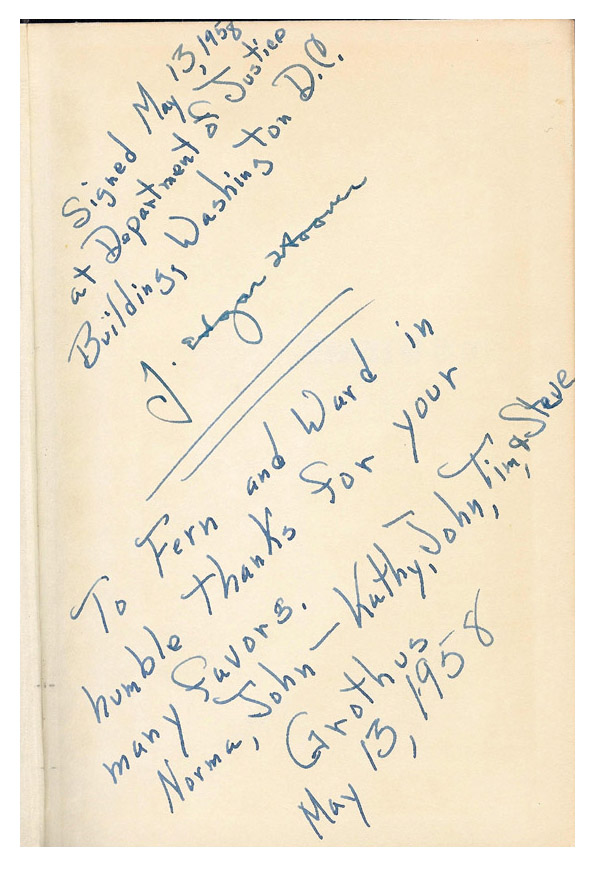 Signed May 13, 1958
at Department of Justice
Buildings Washington D.C.
J. Edgar Hoover
To Fern and Ward in
humble thanks for your
many favors.
Norma, John — Kathy, John, Tim, & Steve
Grothus
May 13, 1958